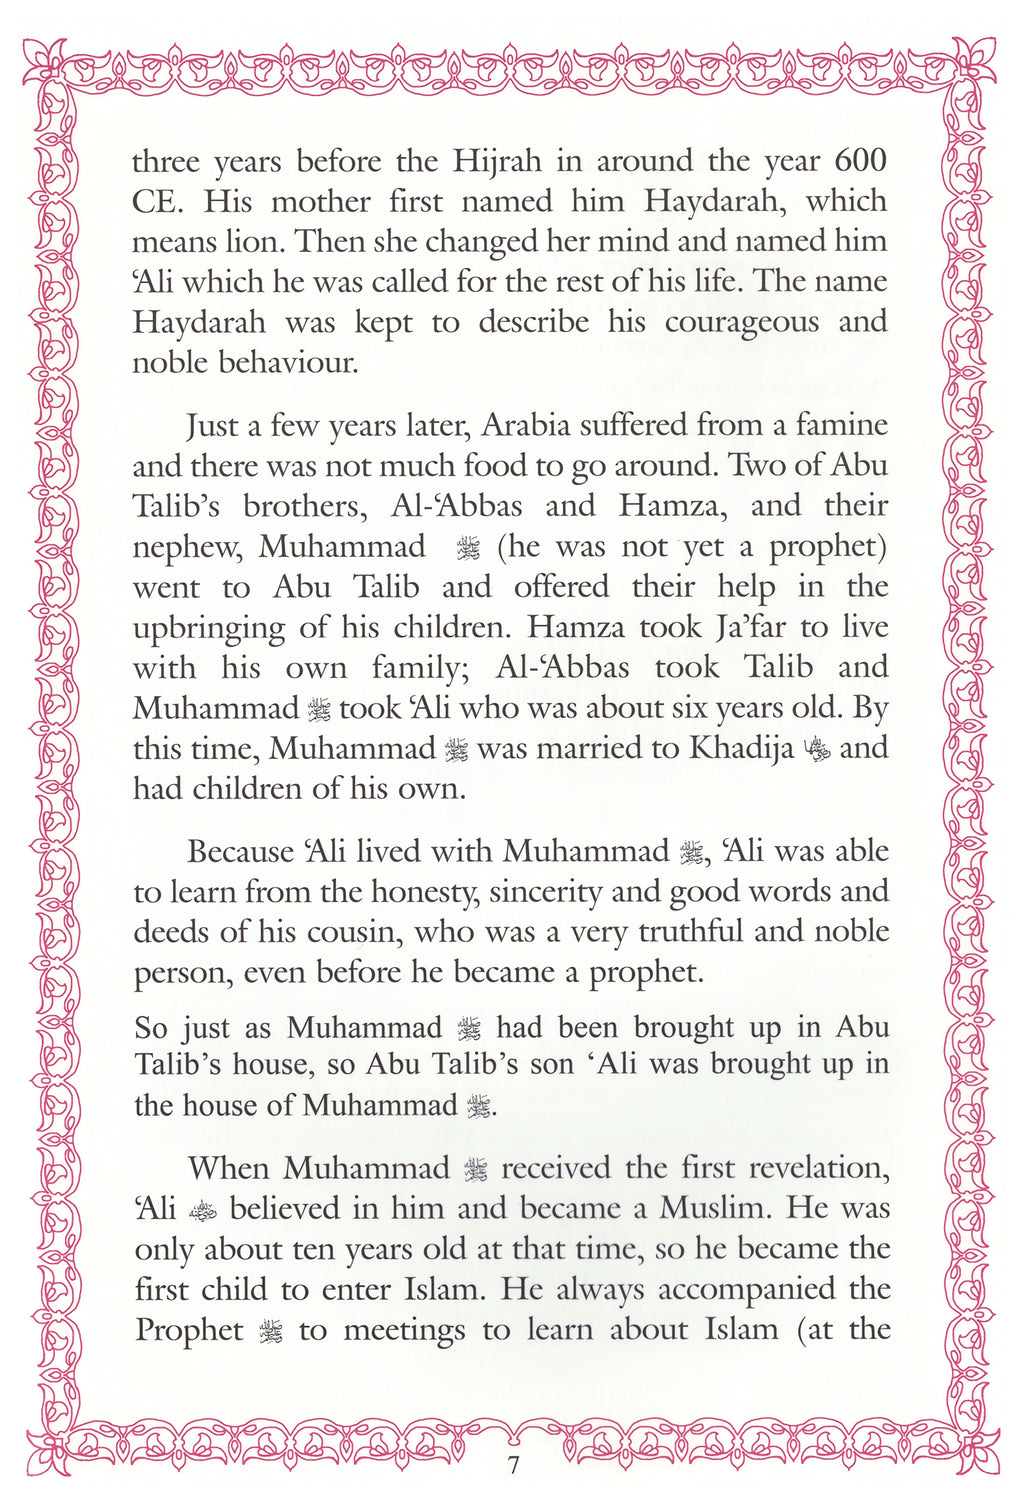 three years before the Hijrah in around the year 600
CE. His mother first named him Haydarah, which
means lion. Then she changed her mind and named him
‘Ali which he was called for the rest of his life. The name
Haydarah was kept to describe his courageous and
noble behaviour.
Just a few years later, Arabia suffered from a famine
and there was not much food to go around. Two of Abu
Talib’s brothers, Al-‘Abbas and Hamza, and their
nephew, Muhammad ﷺ (he was not yet a prophet)
went to Abu Talib and offered their help in the
upbringing of his children. Hamza took Ja’far to live
with his own family; Al-‘Abbas took Talib and
Muhammad ﷺ took ‘Ali who was about six years old. By
this time, Muhammad ﷺ was married to Khadija رضي الله عنها and
had children of his own.
Because ‘Ali lived with Muhammad ﷺ, ‘Ali was able
to learn from the honesty, sincerity and good words and
deeds of his cousin, who was a very truthful and noble
person, even before he became a prophet.
So just as Muhammad ﷺ had been brought up in Abu
Talib’s house, so Abu Talib’s son ‘Ali was brought up in
the house of Muhammad ﷺ.
When Muhammad ﷺ received the first revelation,
‘Ali رضي الله عنه believed in him and became a Muslim. He was
only about ten years old at that time, so he became the
first child to enter Islam. He always accompanied the
Prophet ﷺ to meetings to learn about Islam (at the
7